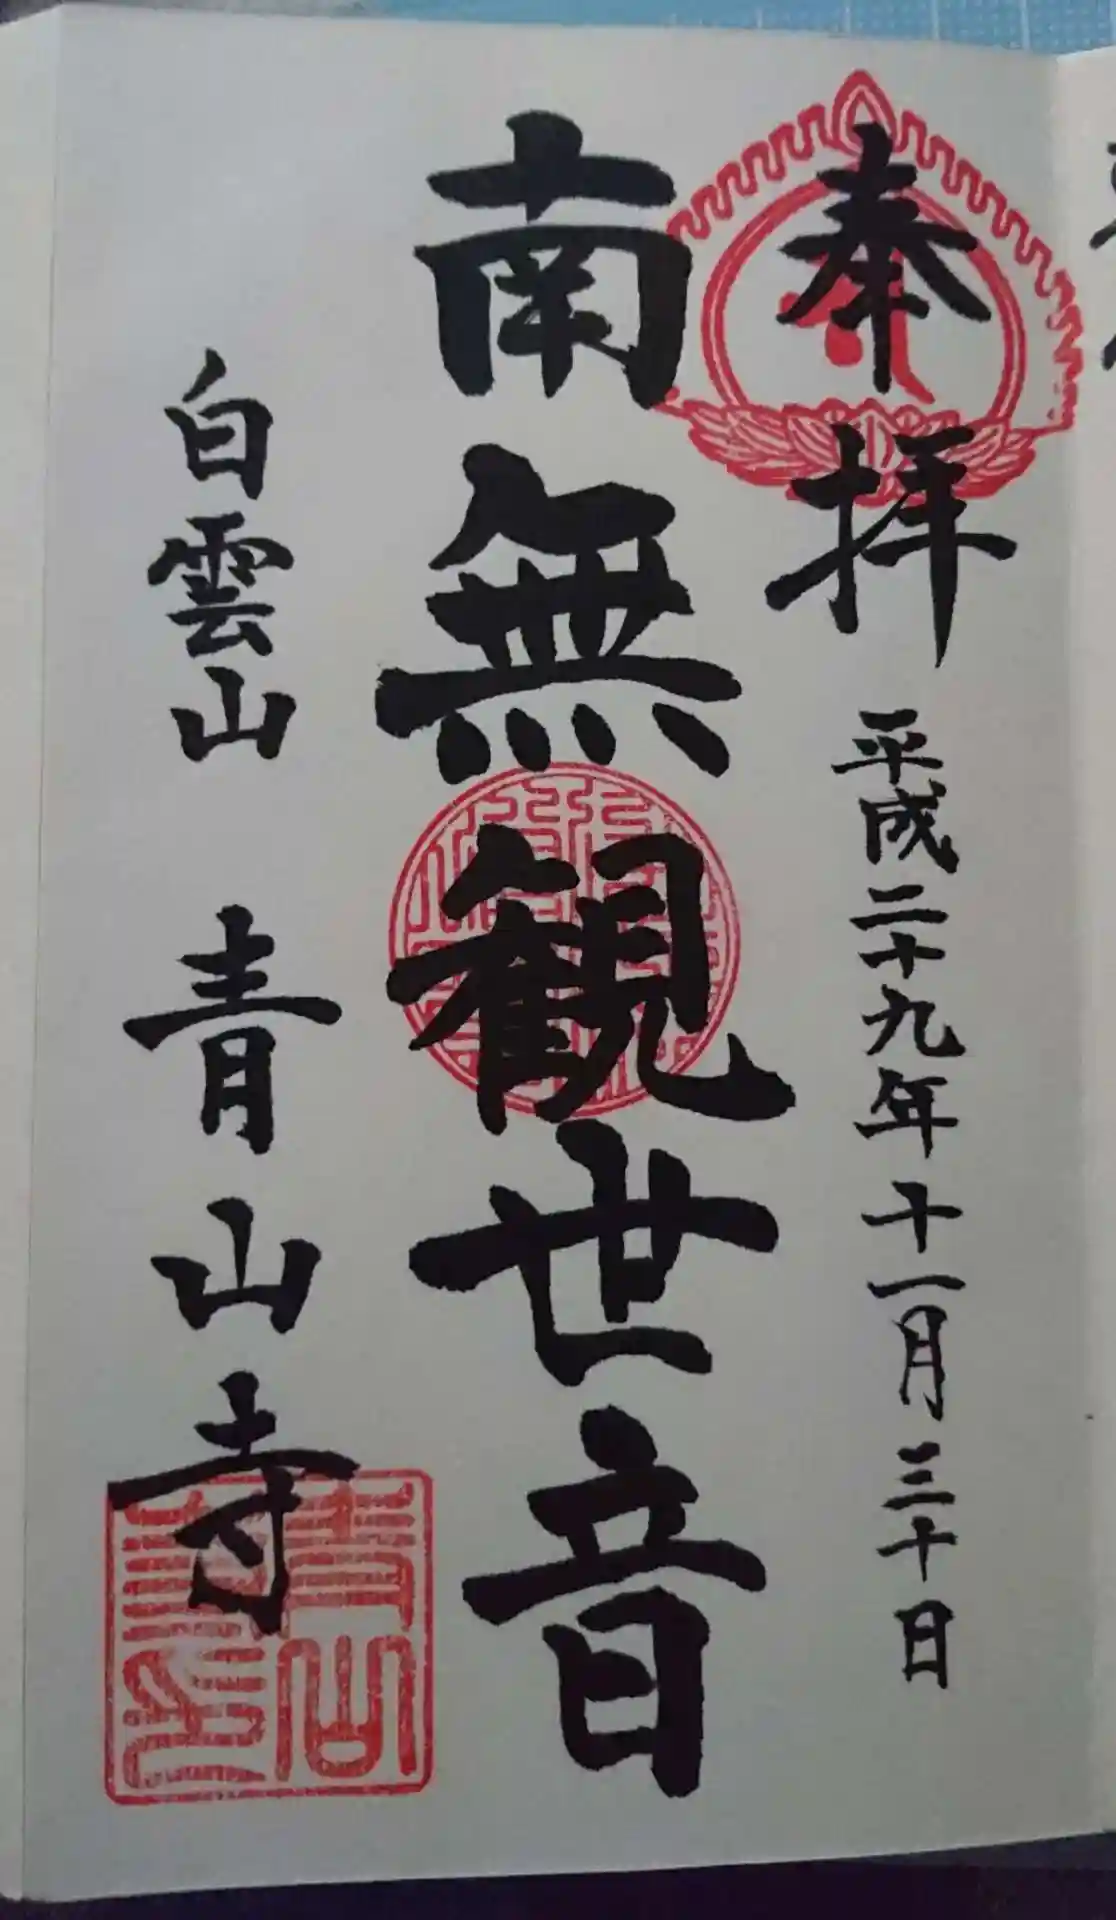 奉拝 平成二十九年十一月三十日
南無観世音
白雲山 青山寺